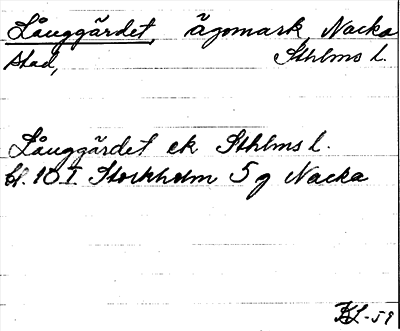 Långgärdet, ägomark, Nacka
stad, Sthlms l.
Långgärdet ek Sthlms l.
bl. 10 I Stockholm 5 g Nacka
BL-59